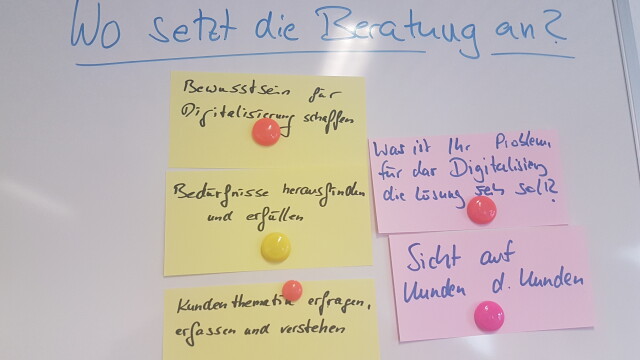 Wo setzt die Beratung an?
Bewusstsein für
Digitalisierung schaffen
Bedürfnisse herausfinden
und erfüllen
Kundenthematik erfragen,
erfassen und verstehen
Was ist Ihr Problem,
für das Digitalisierung
die Lösung sein soll?
Sicht auf
Kunden d. Kunden